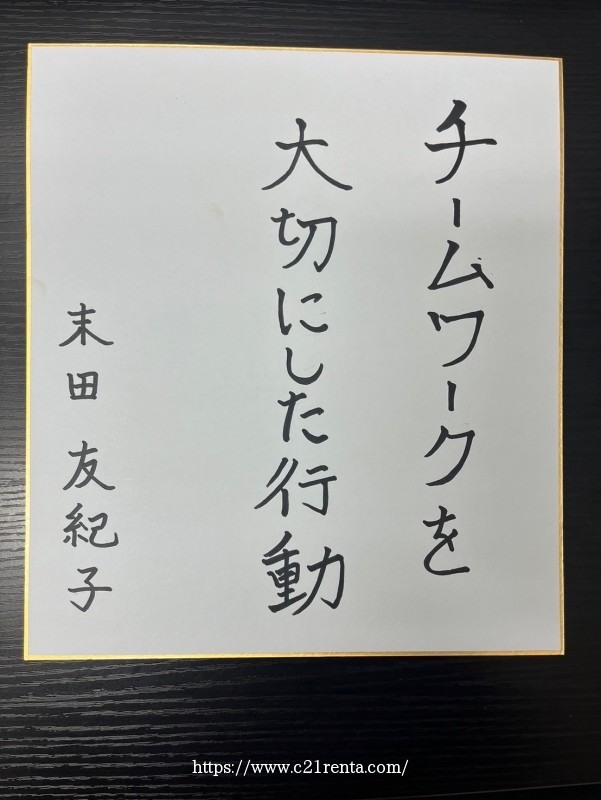 チームワークを
大切にした行動
末田 友紀子
https://www.c21renta.com/